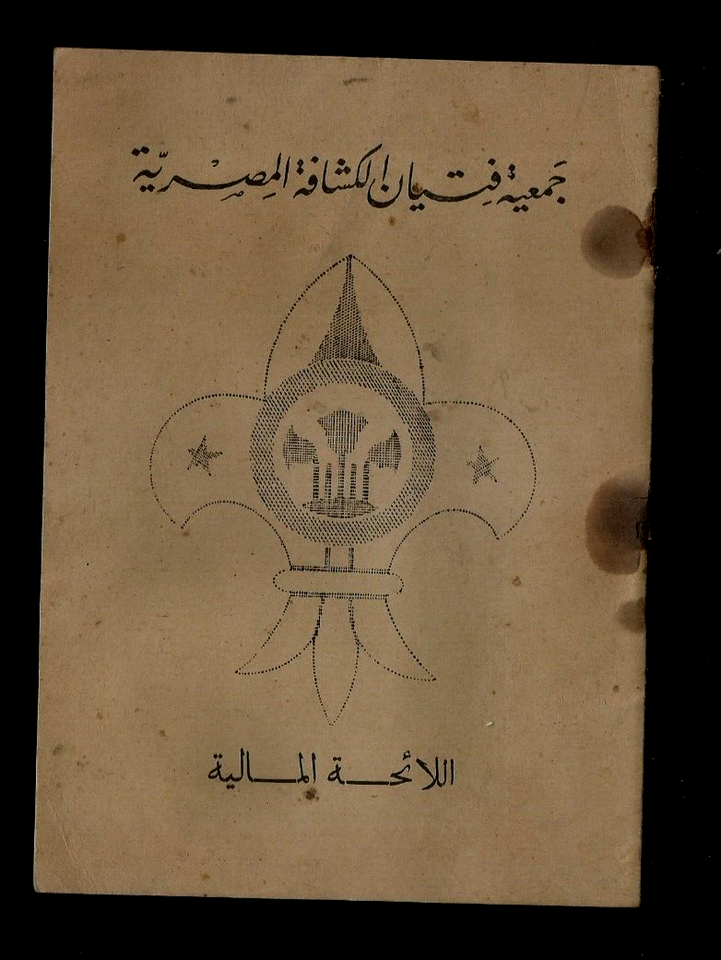 جَمعية فِتيان الكشافة المِصْريّة
اللائحة المالية